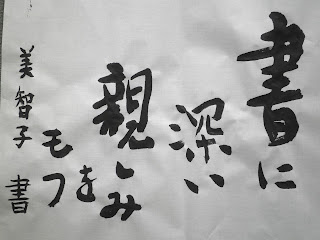 書に
深い
親しみ
を
もつ
美智子 書